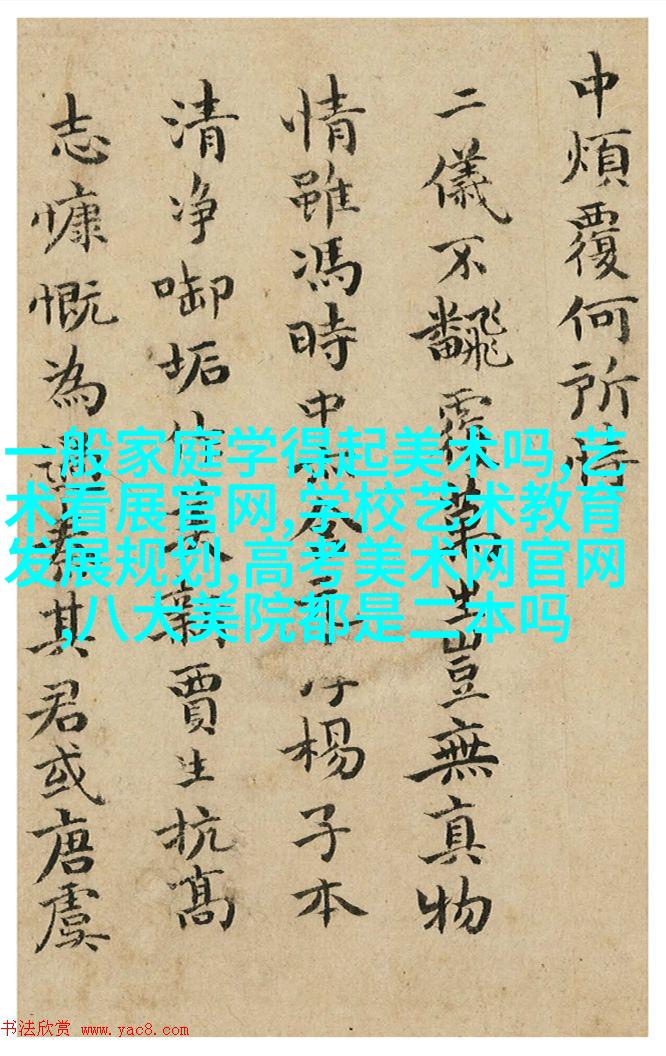 中煩覆何所恃
二儀不飜覆萬生豈無真物
情雖馮時中楊子本
清净啣垢新賈生抗高
志慷慨為其君或唐虞
一般家庭学得起美术吗,艺
术看展官网,学校艺术教育
发展规划,高考美术网官网
,八大美院都是二本吗
书法欣赏 www.yac8.com